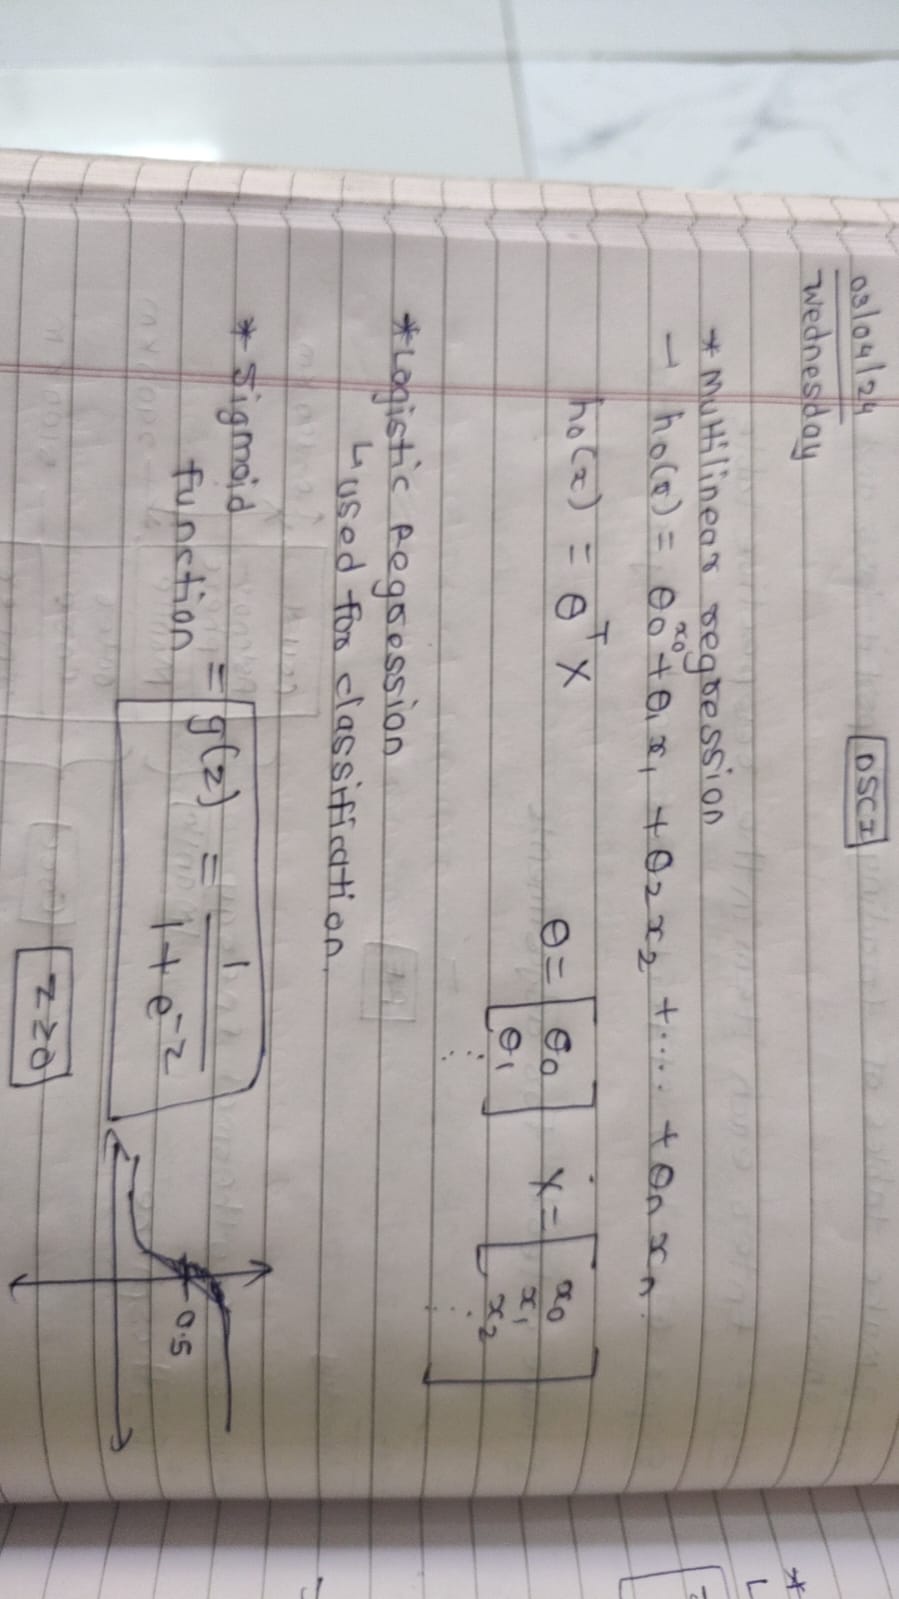 03/04/24
Wednesday
DSCI
* Multilinear regression
- h₀(x) = θ₀x₀ + θ₁x₁ + θ₂x₂ + .... + θₙxₙ.
h₀(x) = θᵀX
θ = [θ₀
θ₁
⋮]
X = [x₀
x₁
x₂
⋮]
* Logistic Regression
↳ used for classification.
* Sigmoid
function = g(z) = 1 / 1 + e⁻ᶻ
0.5
z≥0